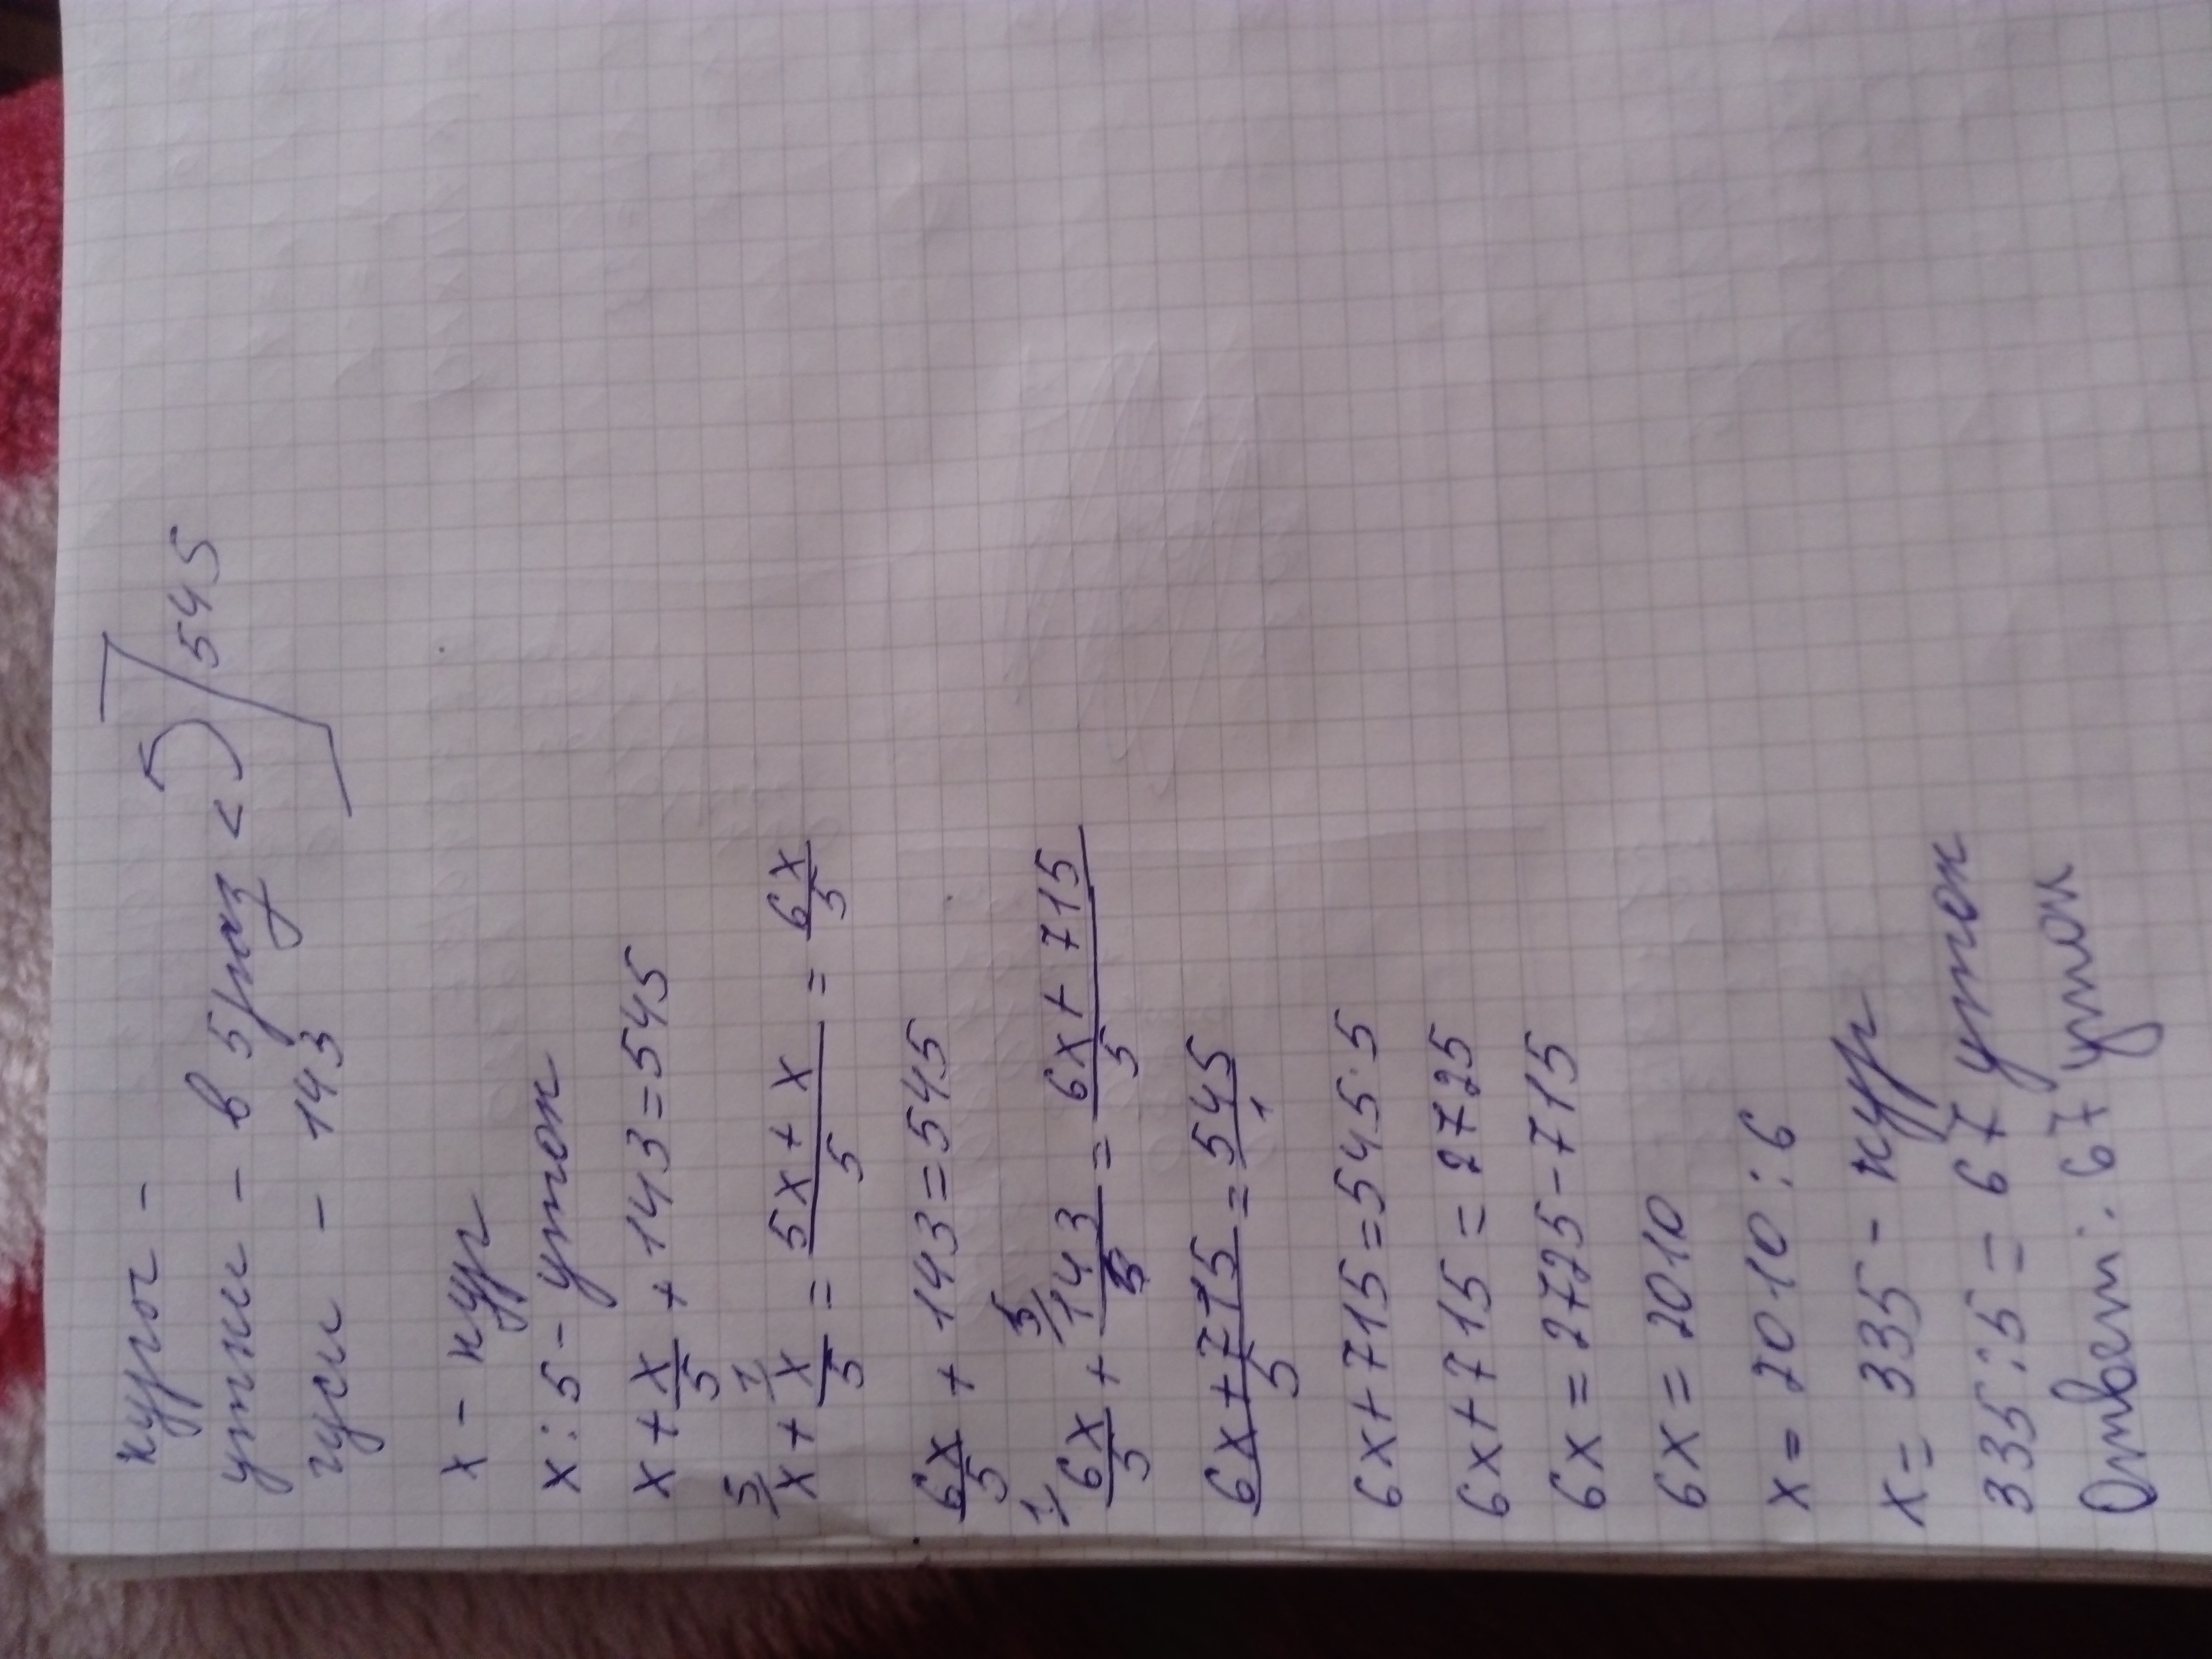 куры -
утки - в 5 раз <
гуси - 143
545
x - кур
x : 5 - уток
x + x/5 + 143 = 545
5/ x + 1/ x/5 = 5x + x/5 = 6x/5
6x/5 + 143 = 545
1/ 6x/5 + 5/ 143/5 = 6x + 715/5
6x + 715/5 = 545/1
6x + 715 = 545 · 5
6x + 715 = 2725
6x = 2725 - 715
6x = 2010
x = 2010 : 6
x = 335 - кур
335 : 5 = 67 уток
Ответ: 67 уток